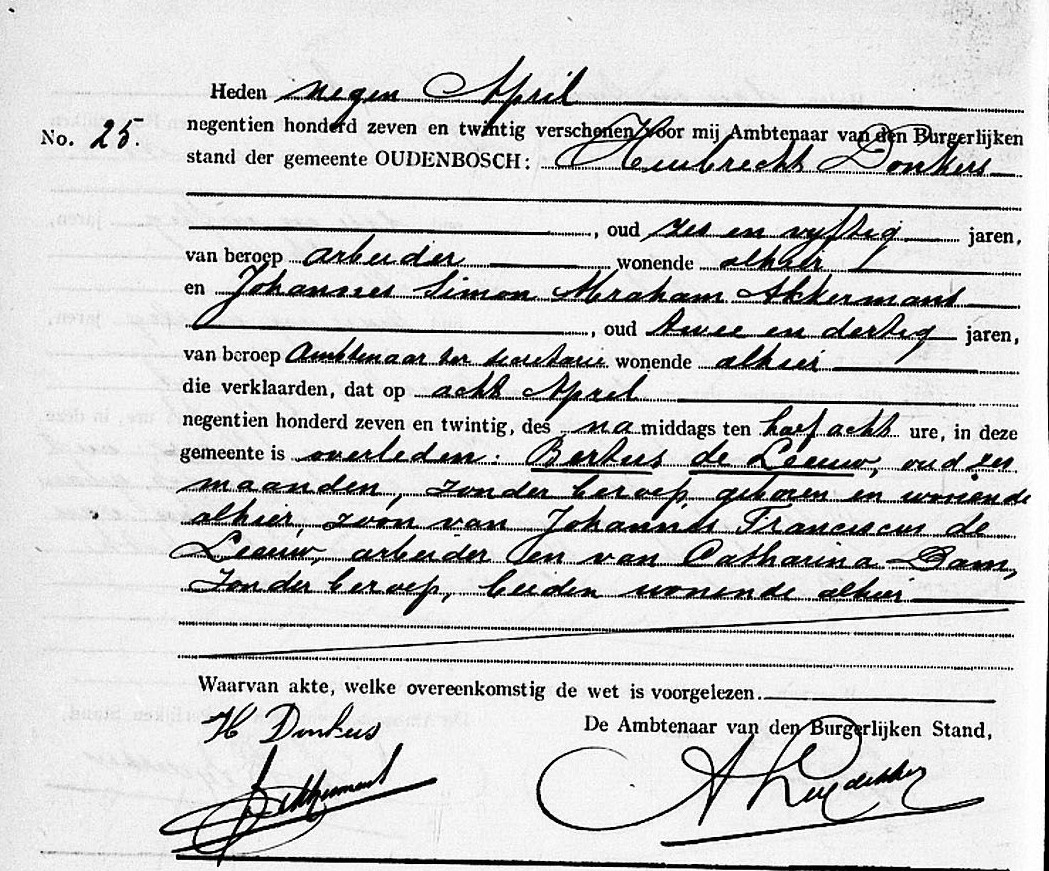 Heden negen April
No. 25.
negentien honderd zeven en twintig verschenen voor mij Ambtenaar van den Burgerlijken
stand der gemeente OUDENBOSCH: Huibrecht Donkers
, oud zes en vijftig jaren,
van beroep arbeider wonende alhier
en Johannes Simon Abraham Akkermans
, oud twee en dertig jaren,
van beroep Ambtenaar ter secretarie wonende alhier
die verklaarden, dat op acht April
negentien honderd zeven en twintig, des namiddags ten half acht ure, in deze
gemeente is overleden: Bertus de Leeuw, oud zes
maanden, zonder beroep geboren en wonende
alhier, zoon van Johannes Franciscus de
Leeuw, arbeider en van Catharina Dam,
zonder beroep, beiden wonende alhier
Waarvan akte, welke overeenkomstig de wet is voorgelezen.
H Donkers
De Ambtenaar van den Burgerlijken Stand,
Akkermans